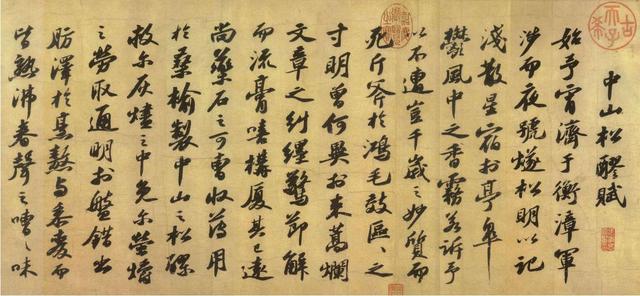 古希天子
中山松醪賦
始予宵濟于衡漳軍
涉而夜號燧松明以記
淺散星宿於亭皋
鬱風中之香霧若訴予
以不遭豈千歲之妙質而
死斤斧於鴻毛效區〻之
寸明曾何異於束蒿爛
文章之糾纆驚節解
而流膏嘻構廈其已遠
尚藥石之可曹收薄用
於桑榆製中山之松醪
救尔灰燼之中免尔螢爝
之勞取通明於盤錯出
肪澤於烹熬与黍麥而
皆熟沸舂聲之嘈〻味